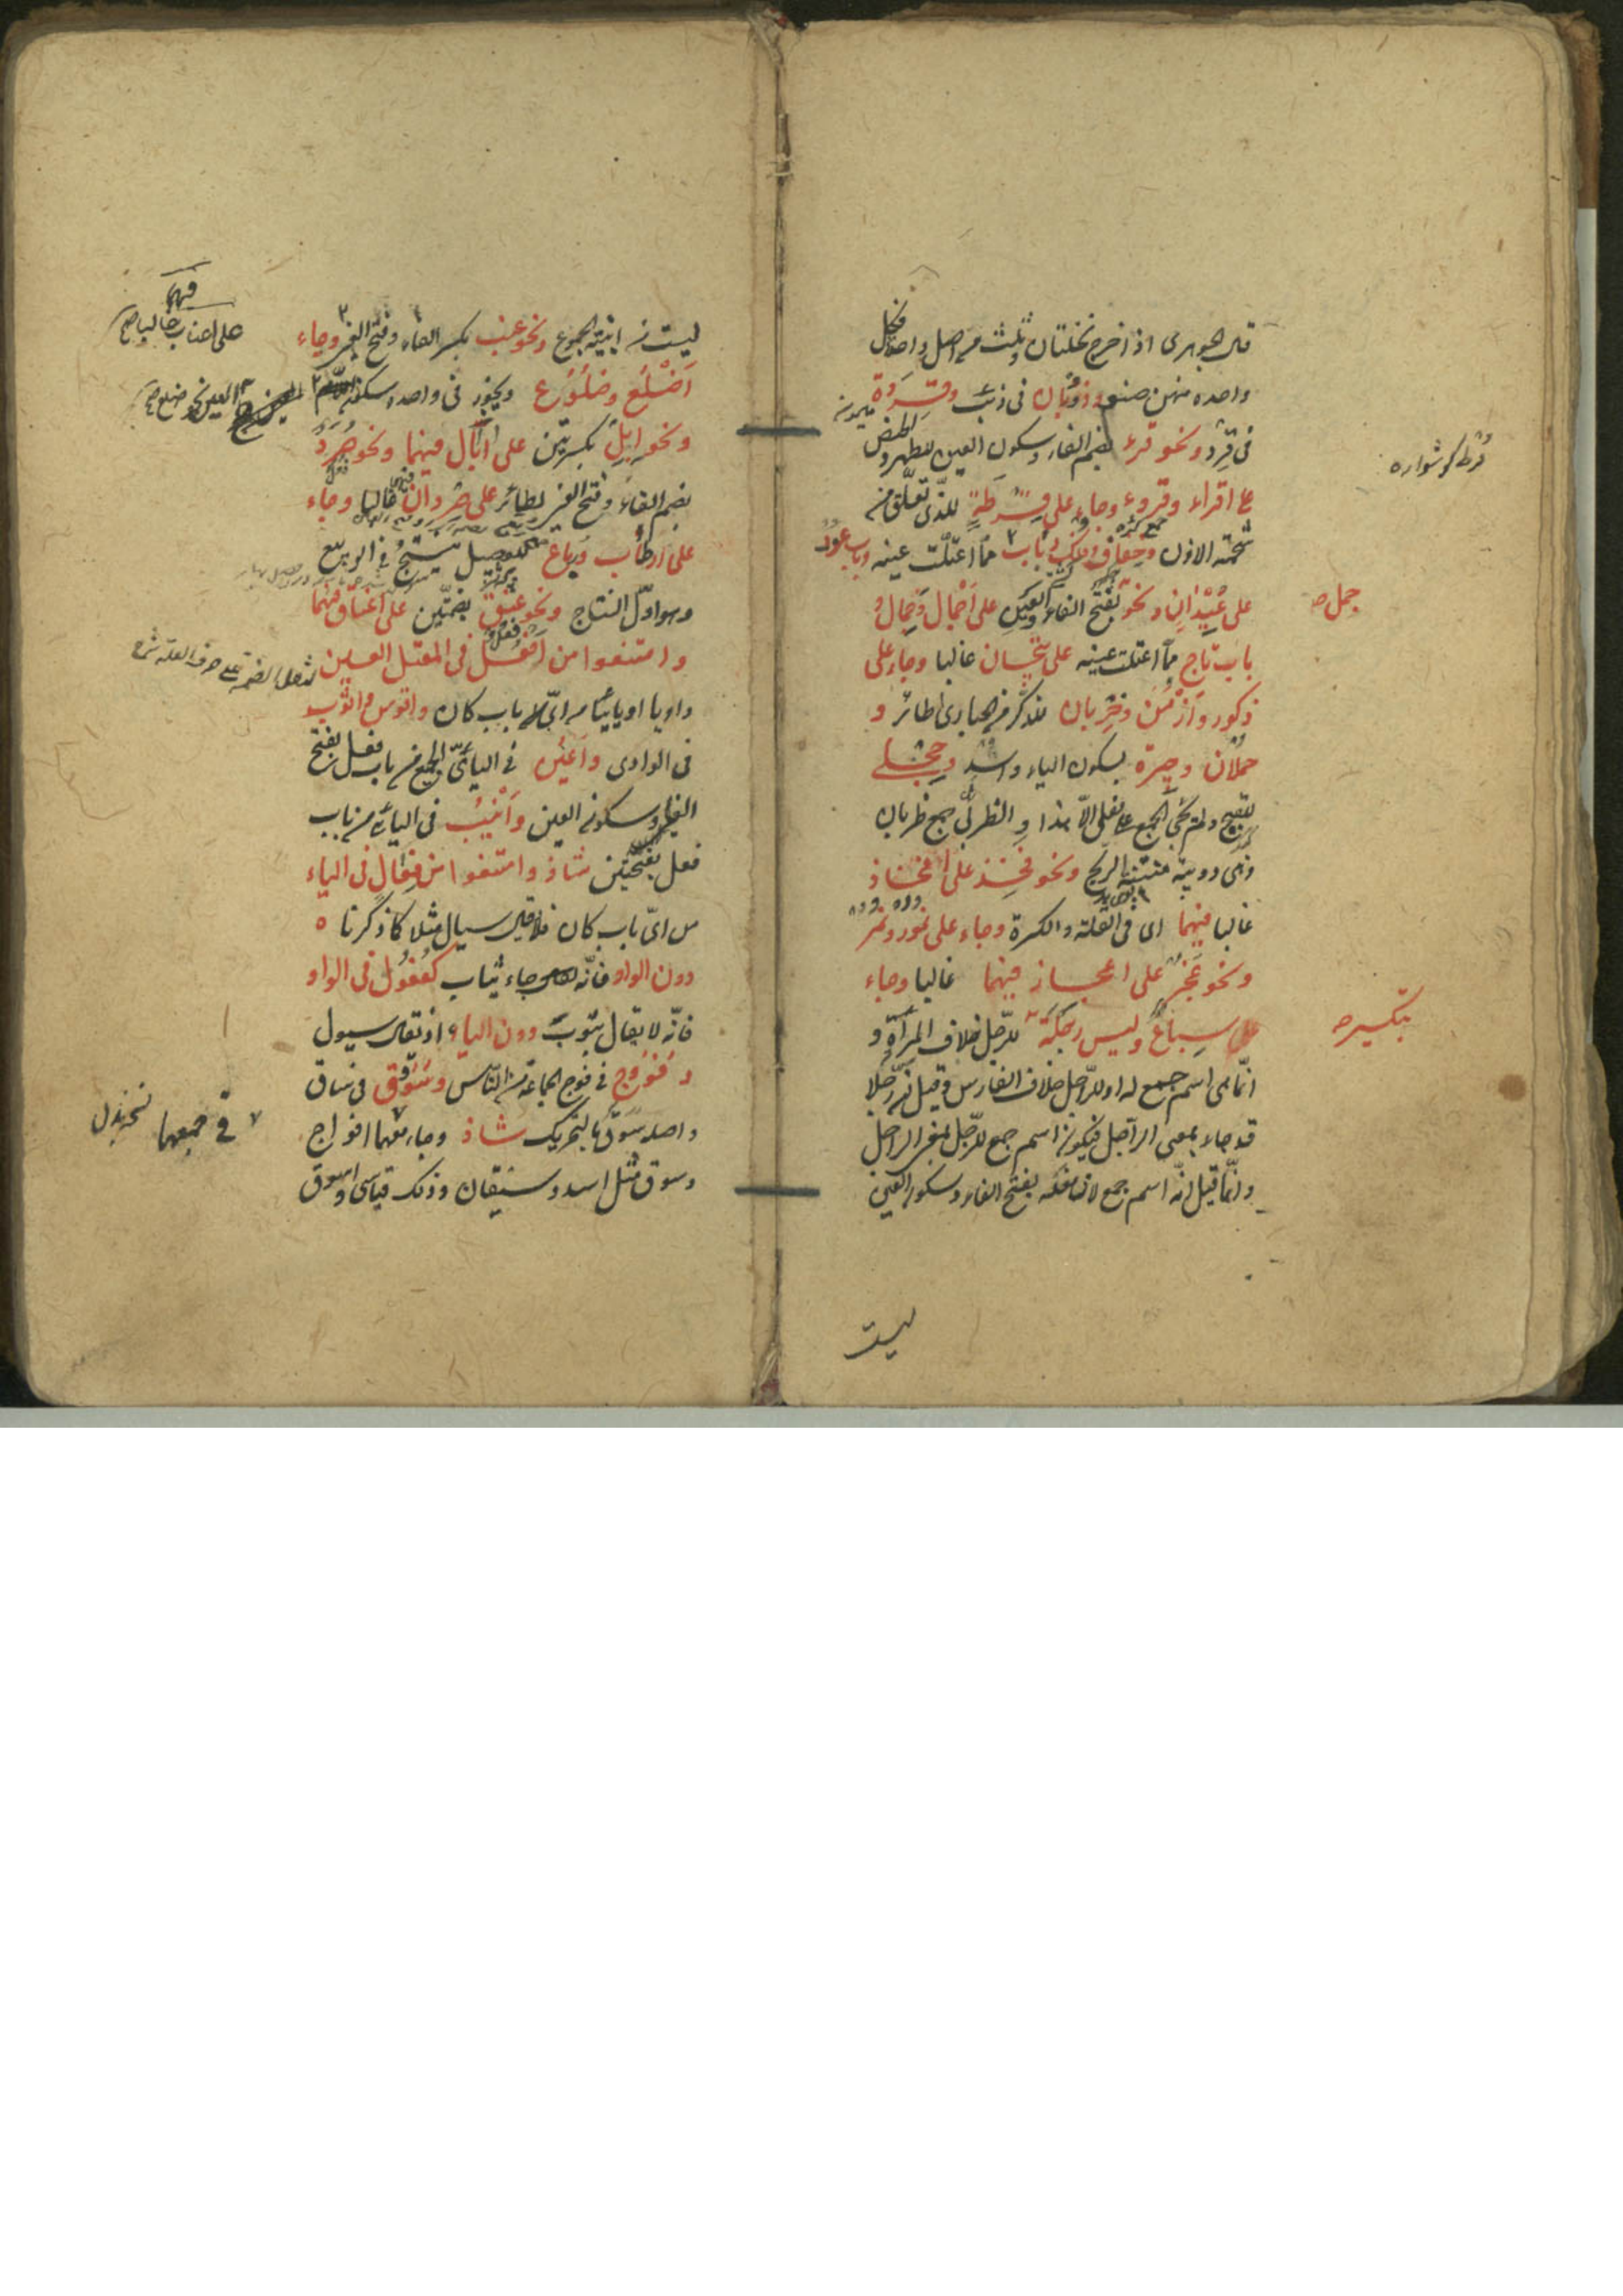 قال الجوهرى اذا خرج نخلتان وثلث من اصل واحد فكل
واحدة منهن صنو وذؤبان فى ذئب وقردة
فى قرد ونحو قرء بضم الفاء وسكون العين للطهر والحيض
على اقراء وقروء وجاء على قرطة للذى تعلق من
شحمة الاذن وخفاف وفلك وباب مما اعتلت عينه وباب عود
على عيدان ونحو بفتح الفاء والعين على اجمال وجمال و
باب تاج مما اعتلت عينه على تيجان غالبا وجاء على
ذكور وازمن وخربان لمذكر من الحبارى لطائر و
حملان وجيرة بسكون الياء واسد وحجلى
للقبج ولم يجئ الجمع على فعلى الا هذا و الظربى جمع ظربان
وهى دويبة منتنة الريح ونحو فخذ على افخاذ
غالبا فيهما اى فى القلة والكثرة وجاء على نمور ونمر
ونحو عجز على اعجاز فيهما غالبا وجاء
سباع وليس رجلة للرجل خلاف المرأة و
انما هى اسم جمع له او للراجل خلاف الفارس وقيل ان رجلا
قد جاء بمعنى الراجل فيكون اسم جمع للرجل بمعنى الراجل
وانما قيل انه اسم جمع لان فعلة بفتح الفاء وسكون العين
ليست
قرط گوشواره
جمل صح
بتكسير صح
ليست من ابنية الجموع ونحو عنب بكسر الفاء وفتح العين وجاء
اضلع وضلوع ويجوز فى واحده سكون
ونحو ابل بكسرتين على آبال فيهما ونحو صرد
بضم الفاء وفتح العين لطائر على صردان غالبا وجاء
على ارطاب ورباع لفصيل ينتج فى الربيع
وهو اول النتاج ونحو عنق بضمتين على اعناق فيهما
وامتنعوا من افعل فى المعتل العين
واويا او يائيا من اى باب كان واقوس واثوب
فى الواوى واعين فى اليائى والجمع من باب فعل بفتح
الفاء وسكون العين وانيب فى اليائى من باب
فعل بفتحتين شاذ وامتنعوا من فعال فى الياء
من اى باب كان فلا يقال سيال مثلا كما ذكرنا ه
دون الواو فانه جاء ثياب كفعول فى الواو
فانه لا يقال ثووب دون الياء اذ يقال سيول
وفووج فى فوج لجماعة من الناس وسووق فى ساق
واصله سوق بالتحريك شاذ وجاء افواج
وسوق مثل اسد وسيقان وذلك قياسى واسوق
فيهما
على اعناب غالبا صح
العين نحو ضلع صح
لثقل الضمة على حرف العلة شرح
فى جمعهما